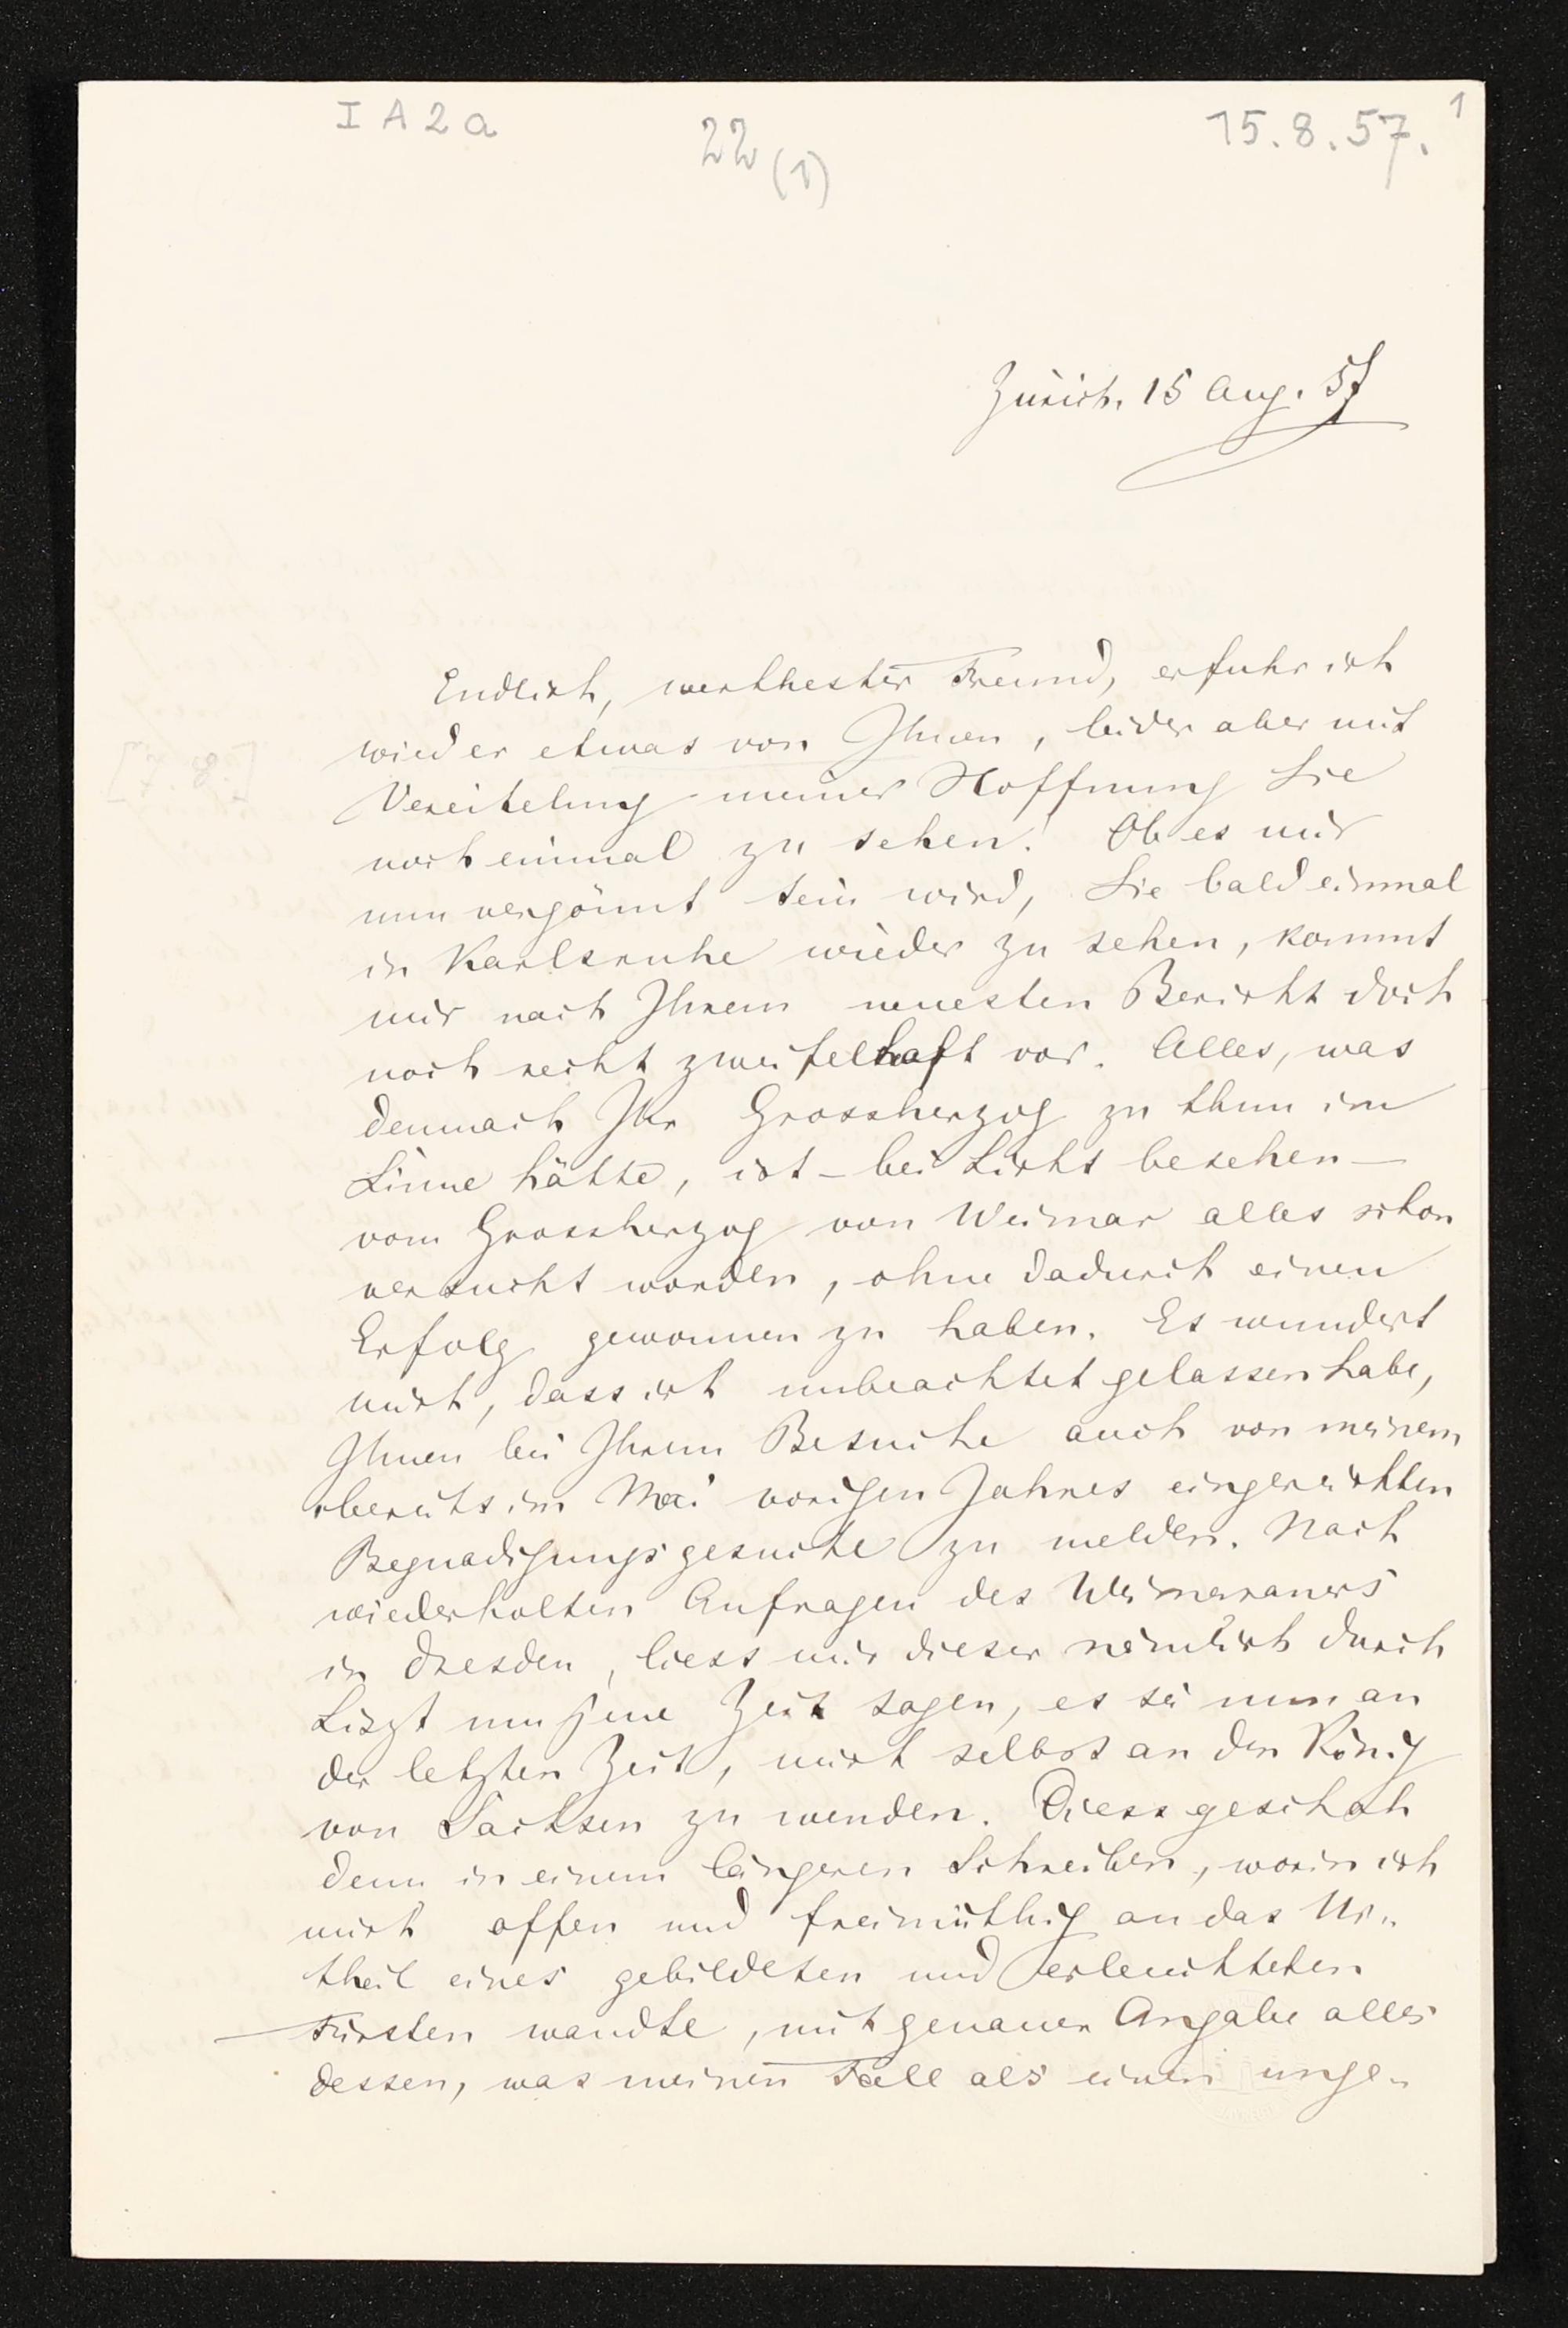 I A 2 a
22 (1)
15.8.57.
1
Zürich. 15 Aug. 57
Endlich, werthester Freund, erfuhr ich
wieder etwas von Ihnen, leider aber mit
Vereitelung meiner Hoffnung Sie
noch einmal zu sehen. Ob es mir
nun vergönnt sein wird, Sie bald einmal
in Karlsruhe wieder zu sehen, kommt
mir nach Ihrem neuesten Bericht doch
noch recht zweifelhaft vor. Alles, was
demnach Ihr Grossherzog zu thun im
Sinne hätte, ist – bei Licht besehen –
vom Grossherzog von Weimar alles schon
versucht worden, ohne dadurch einen
Erfolg gewonnen zu haben. Es wundert
mich, dass ich unbeachtet gelassen habe,
Ihnen bei Ihrem Besuche auch von meinem
bereits im Mai vorigen Jahres eingereichten
Begnadigungsgesuche zu melden. Nach
wiederholten Anfragen des Weimaraners
in Dresden, liess mir dieser nämlich durch
Liszt um jene Zeit sagen, es sei nun an
der letzten Zeit, mich selbst an den König
von Sachsen zu wenden. Diess geschah
denn in einem längeren Schreiben, worin ich
mich offen und freimüthig an das Ur-
theil eines gebildeten und erleuchteten
Fürsten wandte, mit genauer Angabe alles
dessen, was meinen Fall als einen unge-